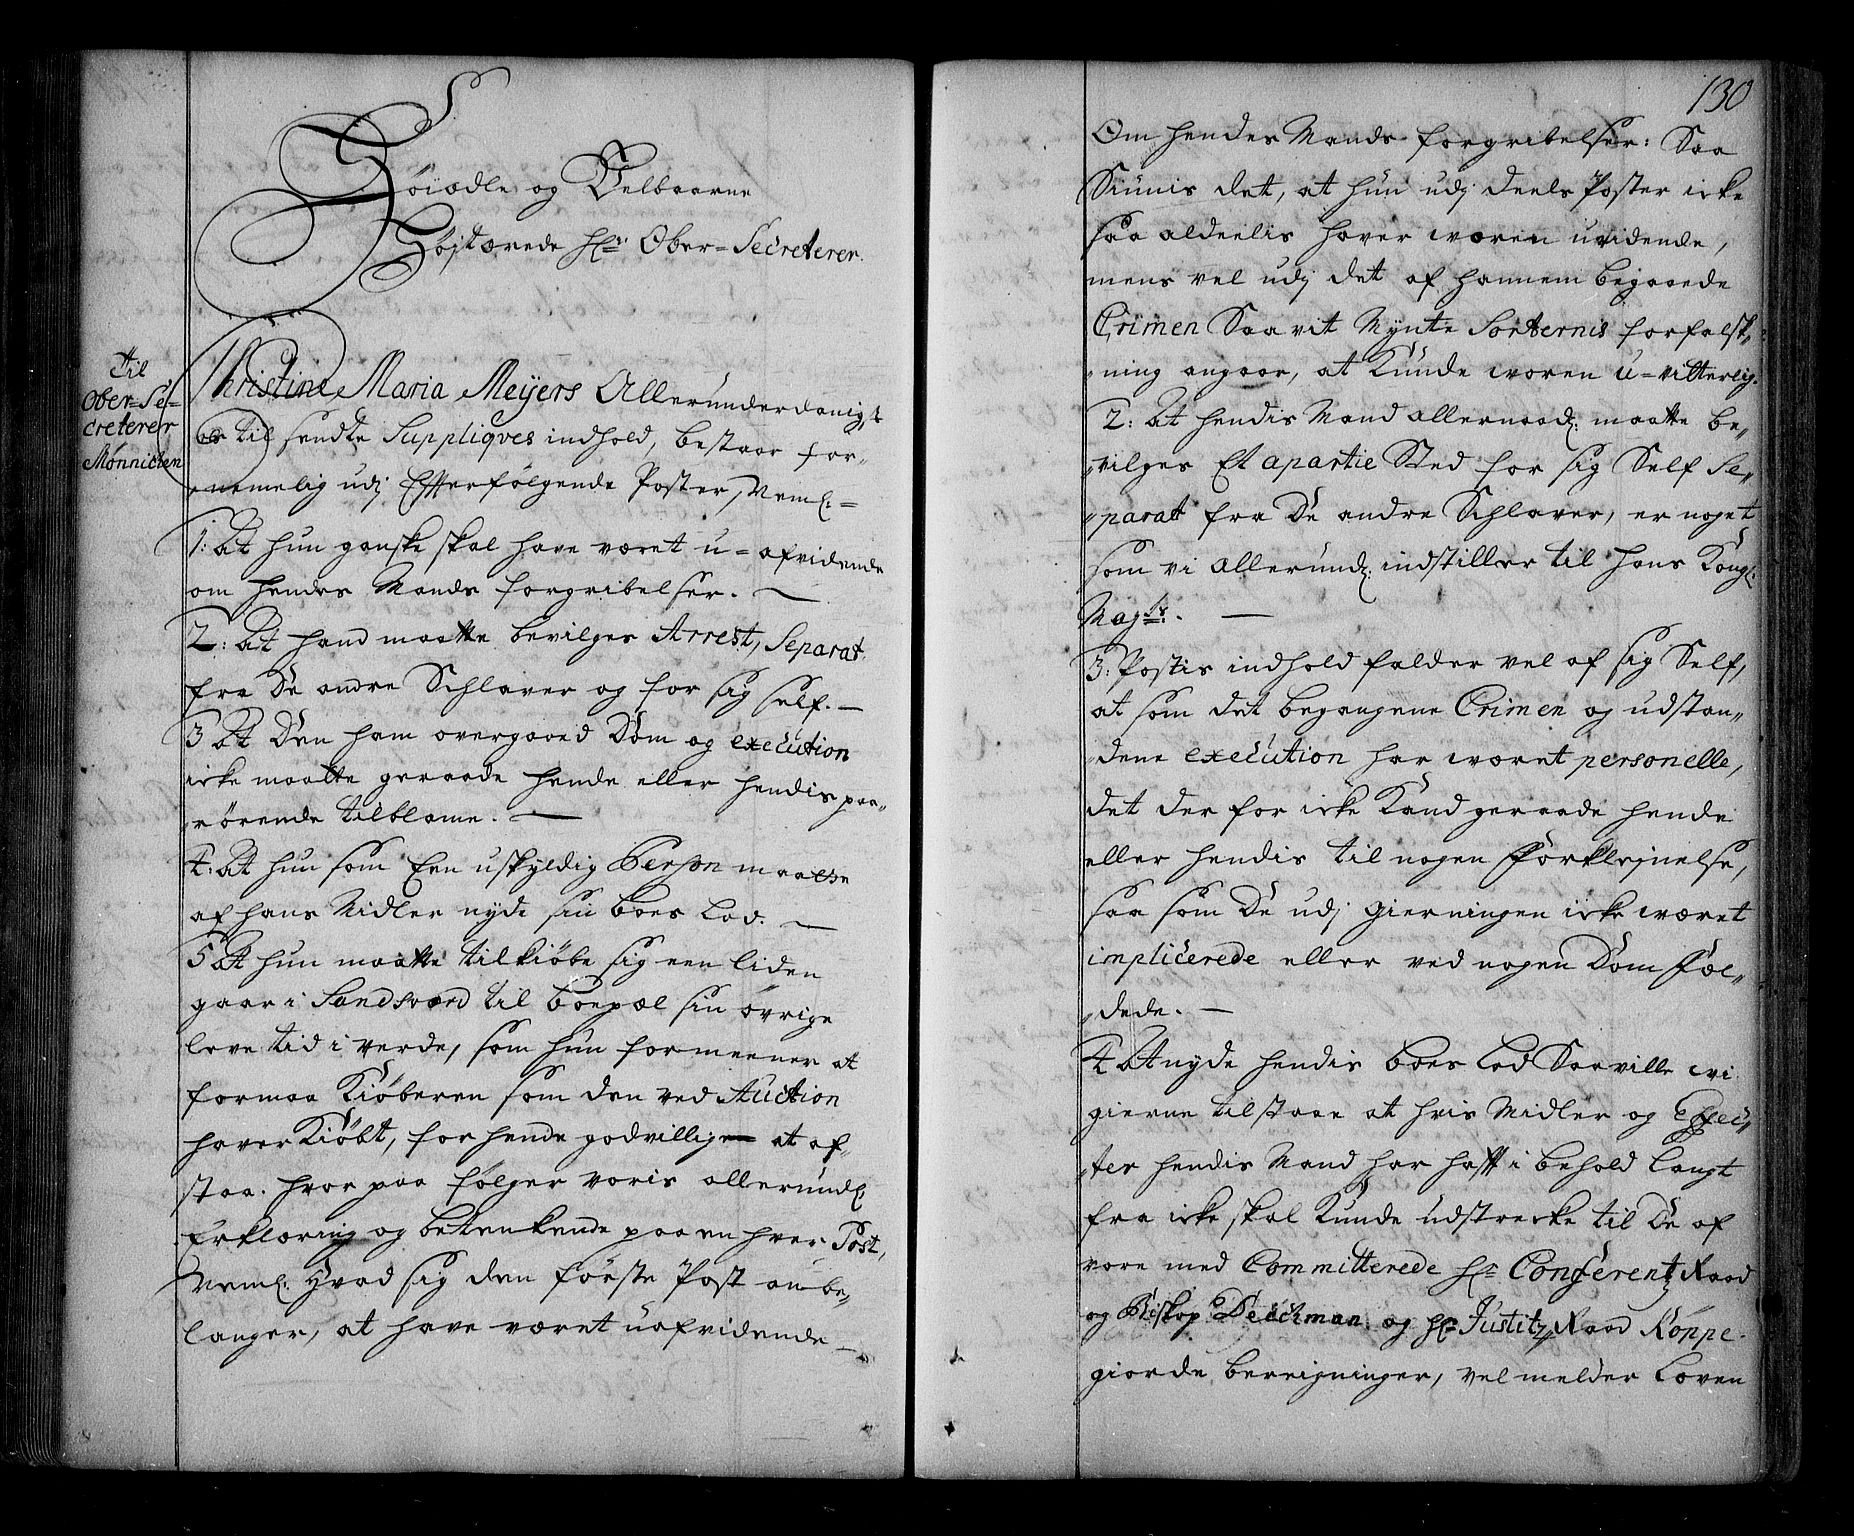 Høiædle og Velbaarne
Højtærede Hr: Ober-Secreterer.
Til
Ober-Se-
creterer
Mønnichen
Christine Maria Meÿers Allerunderdanigst
til sendte Suppliqves indhold, bestaar for„
„nemelig udj Efterfølgende Poster, Neml:=
1: At hun ganske skal have været u=afvidende
om hendes Mands forgribelser. —
2: At hand maatte bevilges Arrest, Separat
fra De andre Schlaver og for sig self. —
3 At Den ham overgaaed Dom og execution
icke maatte geraade hende eller hendis paa„
„rørende til blame. —
4: At hun som Een uskyldig Person maatte
af hans Midler nyde sin boes Lod. —
5 At hun maatte tilkiøbe sig een liden
gaar i Sandsværd til boepæl sin øvrige
leve tid i verde, som hun formeener at
formaa Kiøberen som den ved Auction
haver Kiøbt, for hende godvillig at af„
staa. hvor paa følger voris allerundl:
Erklæring og betenkende paa en hver Post,
Neml: Hvad sig den første Post anbe„
langer, at have været uafvidende —
130
Om hendes Mands forgribelser: Saa
Siunis det, at hun udj deels Poster icke
saa aldeelis haver væren uvidende,
mens vel udj det af hannem begaaede
Crimen Saavit Mÿnte Sorternis forfalsk„
„ning angaar, at Kunde væren u=vitterlig.
2: At hendis Mand allernaad: maatte be„
„vilges Et apartie Sted for sig Self Se„
„parat fra De andre Schlaver, er noget
som vi allerund: indstiller til Hans Kongl:
Majts: —
3: Postis indhold falder vel af sig Self,
at som det begangene Crimen og udstan„
„dene execution har været personelle,
det der for icke Kand geraade hende
eller hendis til nogen Forklejnelse,
saa som De udj gierningen icke været
implicerede eller ved nogen Dom fæl„
„dede. —
4 At nyde hendis boes Lod Saa ville vi
gierne tilstaae at hvis Midler og Effec„
„ter hendis Mand har haft i behold langt
fra icke skal Kunde udstrecke til De af
vore med Committerede Hr: Conferentz Raad
og Biskop Deichman og Hr: Justitz Raad Röppe
giorde bereigninger, vel melder Loven